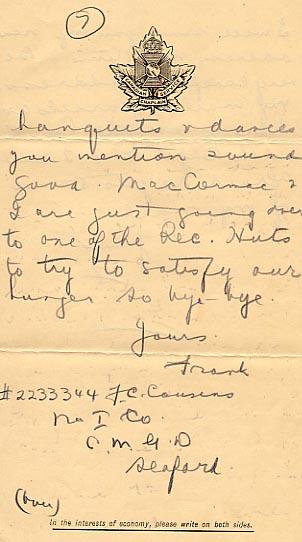 7
CANADIAN CHAPLAIN SERVICES
banquets & dances
you mention sound
good. MacCormac &
I are just going over
to one of the Rec. Huts
to try to satisfy our
hunger. So bye-bye.
Yours
Frank
#2233344 F.C. Cousins
No. I Co.
C. M. G. D
Seaford.
(over)
In the interests of economy, please write on both sides.